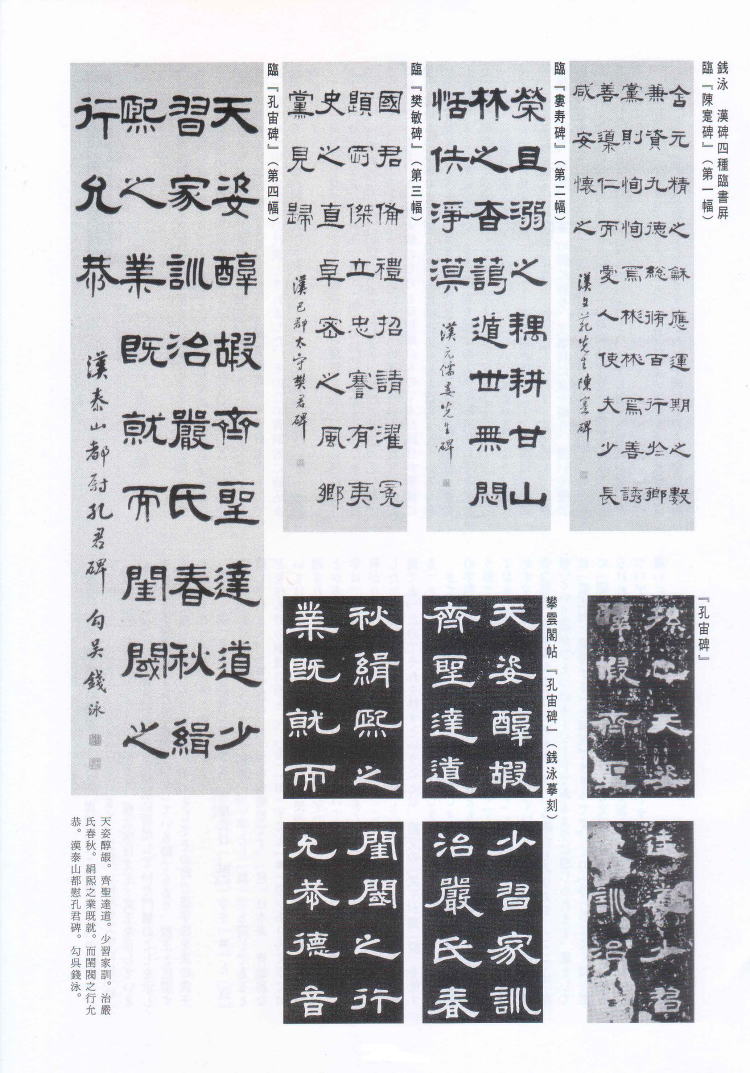 銭泳　漢碑四種臨書屏
臨『陳寔碑』（第一幅）
含元精之龢應運期之數
兼資九德総脩百行於鄉
黨則恂恂焉彬彬焉善誘
善導仁而愛人使夫少長
咸安懷之
漢文范先生陳寔碑
臨『婁寿碑』（第二幅）
榮且溺之耦耕甘山
林之杳藹遁世無悶
恬佚淨漠
漢元儒婁先生碑
臨『樊敏碑』（第三幅）
國君備禮招請濯冕
題剛傑立忠謇有夷
史之直卓密之風鄉
黨見歸
漢巴郡太守樊君碑
臨『孔宙碑』（第四幅）
天姿醇嘏齊聖達道少
習家訓治嚴氏春秋緝
熙之業既就而閨閾之
行允恭
漢泰山都尉孔君碑　勾吳錢泳
『孔宙碑』
天姿
嘏齊聖
達道少習
訓治
攀雲閣帖『孔宙碑』（銭泳摹刻）
天姿醇嘏
齊聖達道
少習家訓
治嚴氏春
秋緝熙之
業既就而
閨閾之行
允恭德音
天姿醇嘏。齊聖達道。少習家訓。治嚴
氏春秋。絹煕之業既就。而閨閾之行允
恭。漢泰山都慰孔君碑。勾吳錢泳。